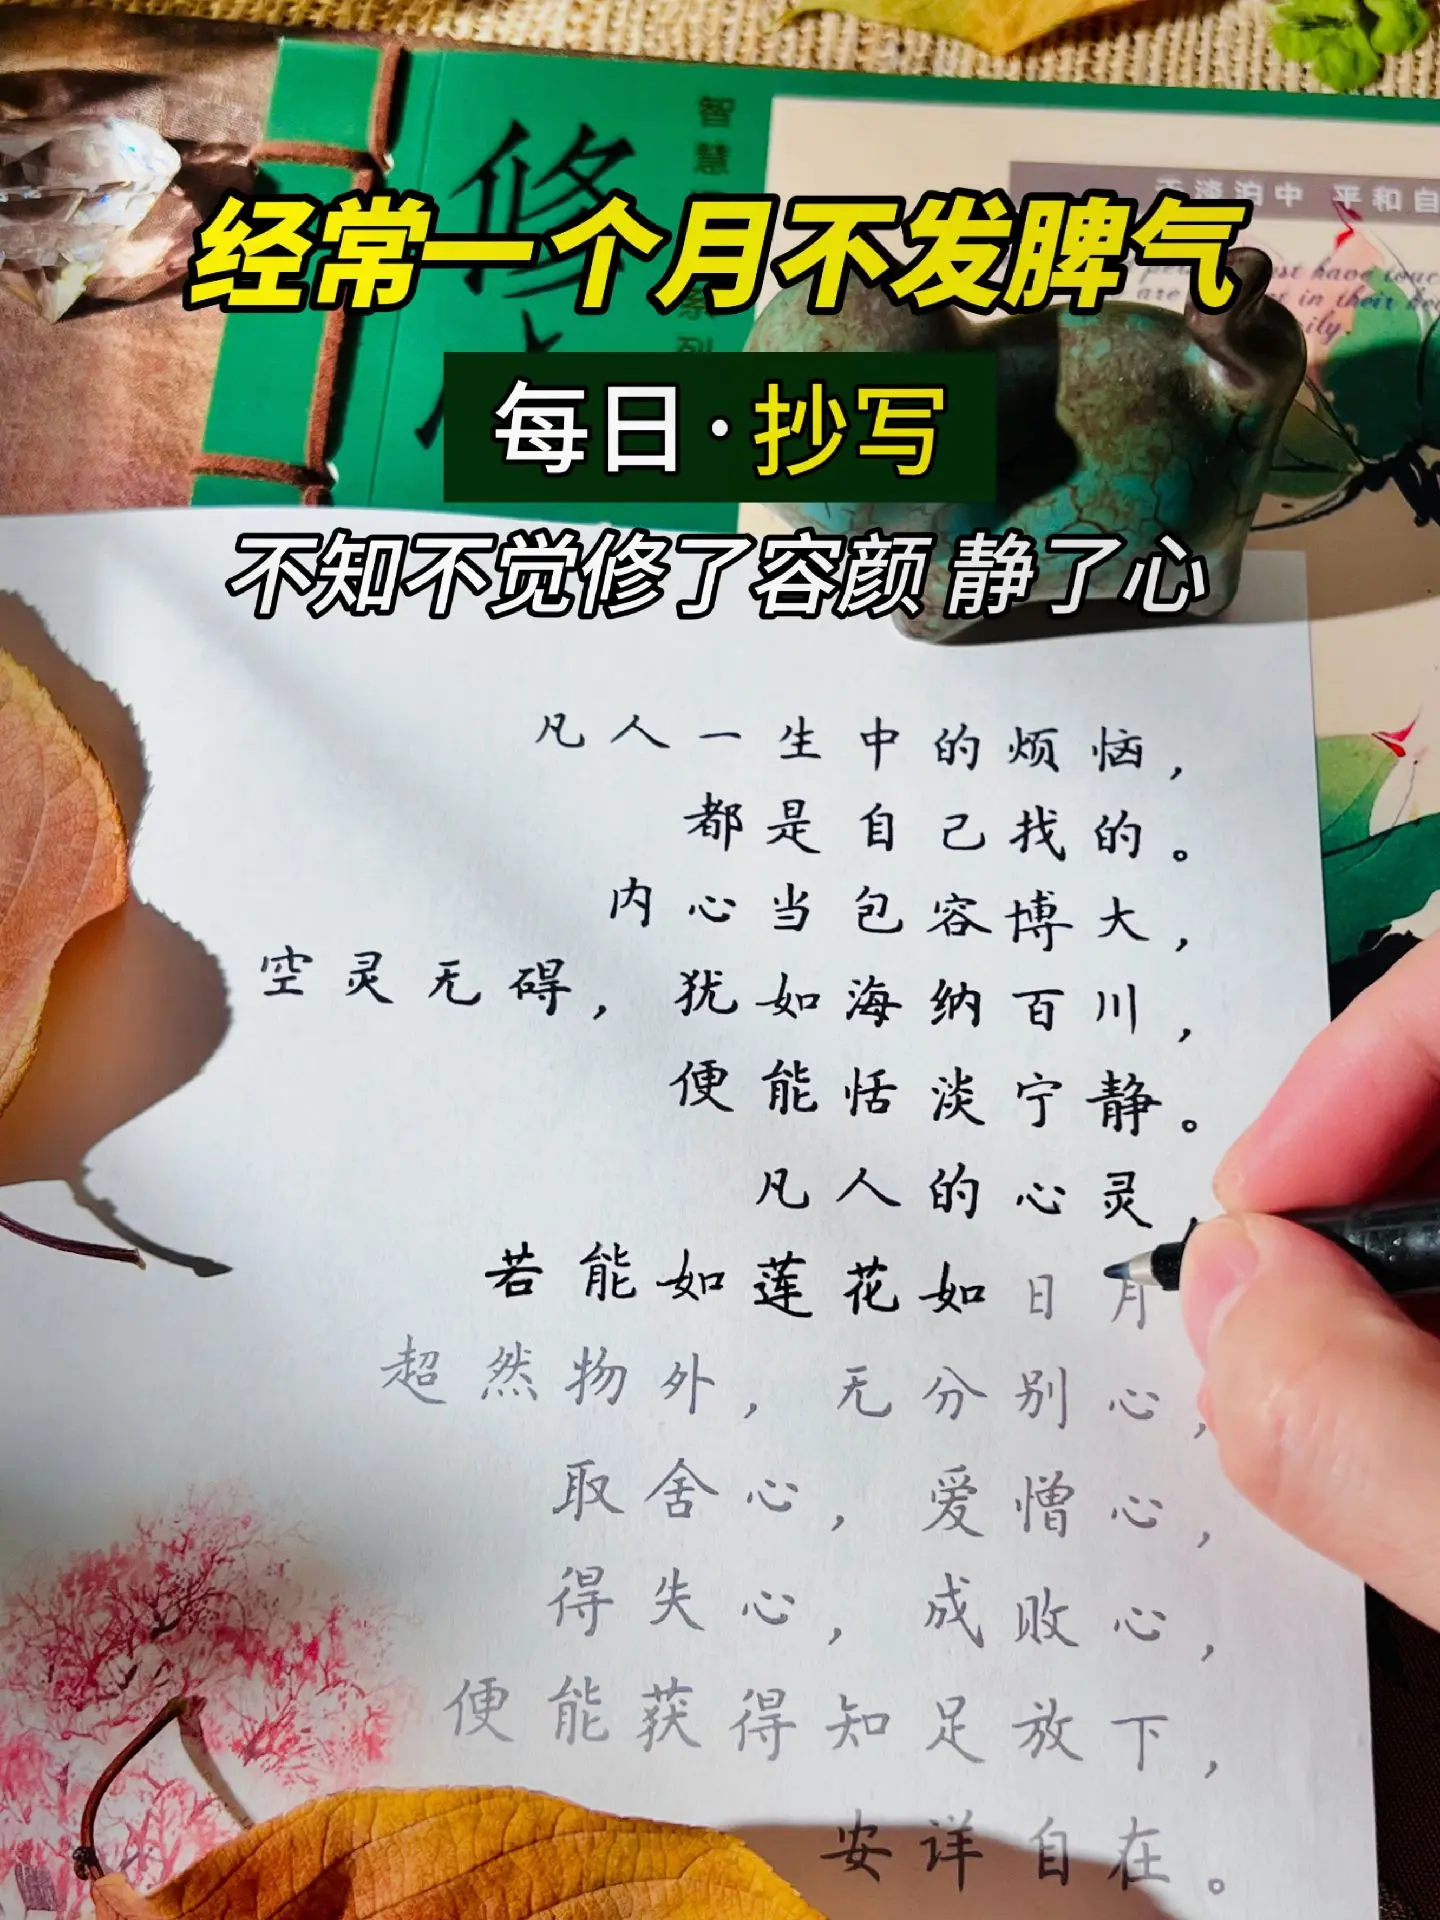 修
智慧
系列
于淡泊中 平和自
经常一个月不发脾气
每日·抄写
不知不觉修了容颜 静了心
凡人一生中的烦恼，
都是自己找的。
内心当包容博大，
空灵无碍，犹如海纳百川，
便能恬淡宁静。
凡人的心灵，
若能如莲花如日月
超然物外，无分别心，
取舍心，爱憎心，
得失心，成败心，
便能获得知足放下，
安详自在。